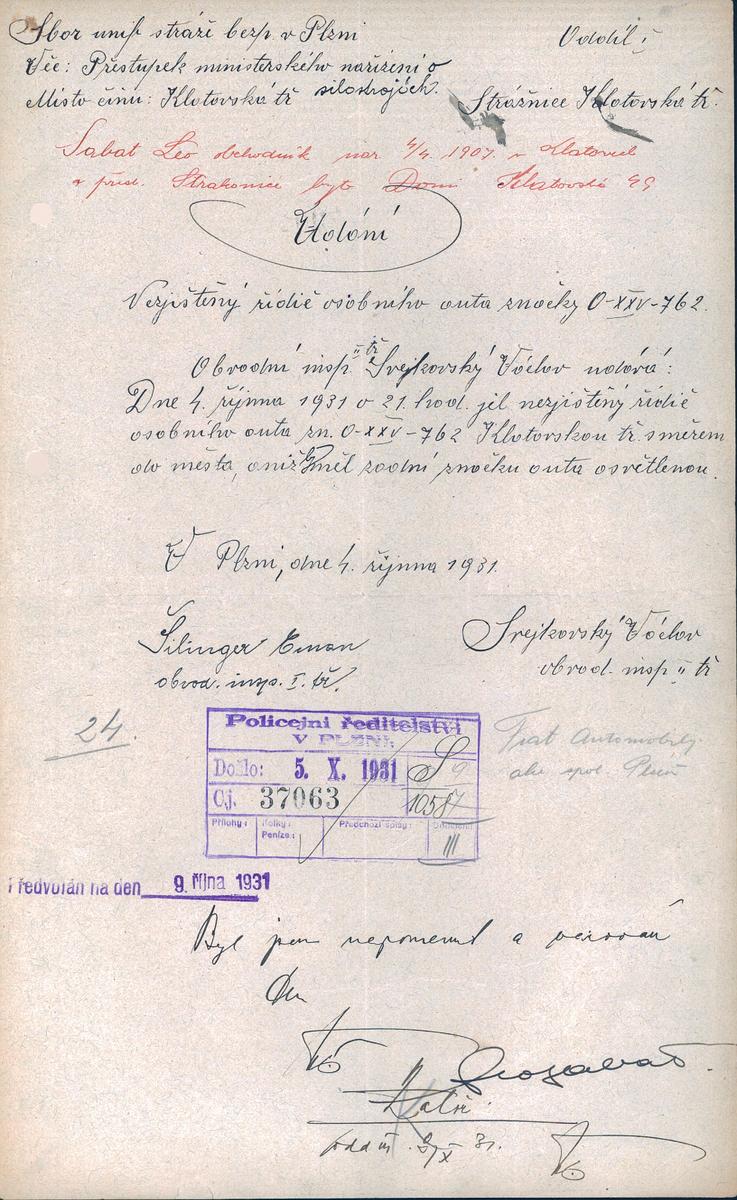 Sbor unif. stráže bezp. v Plzni Oddíl:
Věc: Přestupek ministerského nařízení o
silostrojích.
Místo činu: Klatovská tř. Strážnice Klatovská tř.
Sabat Leo obchodník nar. 4/4. 1907. v Klatovech
a přísl. Strakonice byt. Domi Klatovská 49
Udání
Nezjištěný řidič osobního auta značky O-XXV-762.
Obvodní insp. II tř. Srejkovský Václav udává:
Dne 4. října 1931 o 21. hod. jel nezjištěný řidič
osobního auta zn. O-XXV-762 Klatovskou tř. směrem
do města, aniž by měl zadní značku auta osvětlenou.
V Plzni, dne 4. října 1931.
Šilinger Eman Srejkovský Václav
obvod. insp. I. tř. obvod. insp. II tř
24.
Policejní ředitelství
V PLZNI.
Došlo: 5. X. 1931
Čj. 37063
S 9
10587
Přílohy: Kolky: Peníze: Předchozí spisy: Oddělení:
III
Fiat Automobily
akc. spol. Plzeň
Předvolán na den 9. října 1931
Byl jsem napomenut a varován
9/X 31.